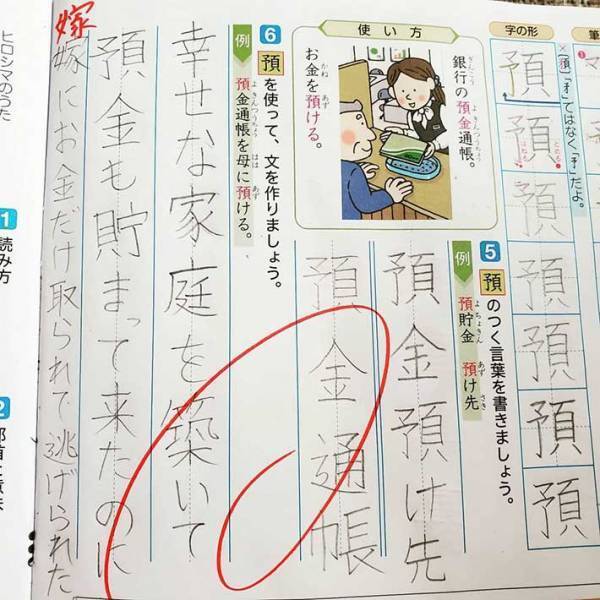 筆
字の形
ではなく「予」だよ。
預
預
預
預
預
預
預
使い方
銀行の預金通帳。
お金を預ける。
5 預のつく言葉を書きましょう。
例 預貯金 預け先
預金預け先
預金通帳
6 預を使って、文を作りましょう。
例 預金通帳を母に預ける。
幸せな家庭を築いて
預金も貯まって来たのに
嫁にお金だけ取られて逃げられた
嫁
ヒロシマのうた
1 読み方
2